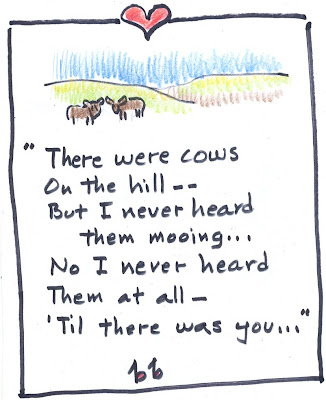 "There were cows
On the hill --
But I never heard
them mooing...
No I never heard
Them at all –
'Til there was you..."
bb